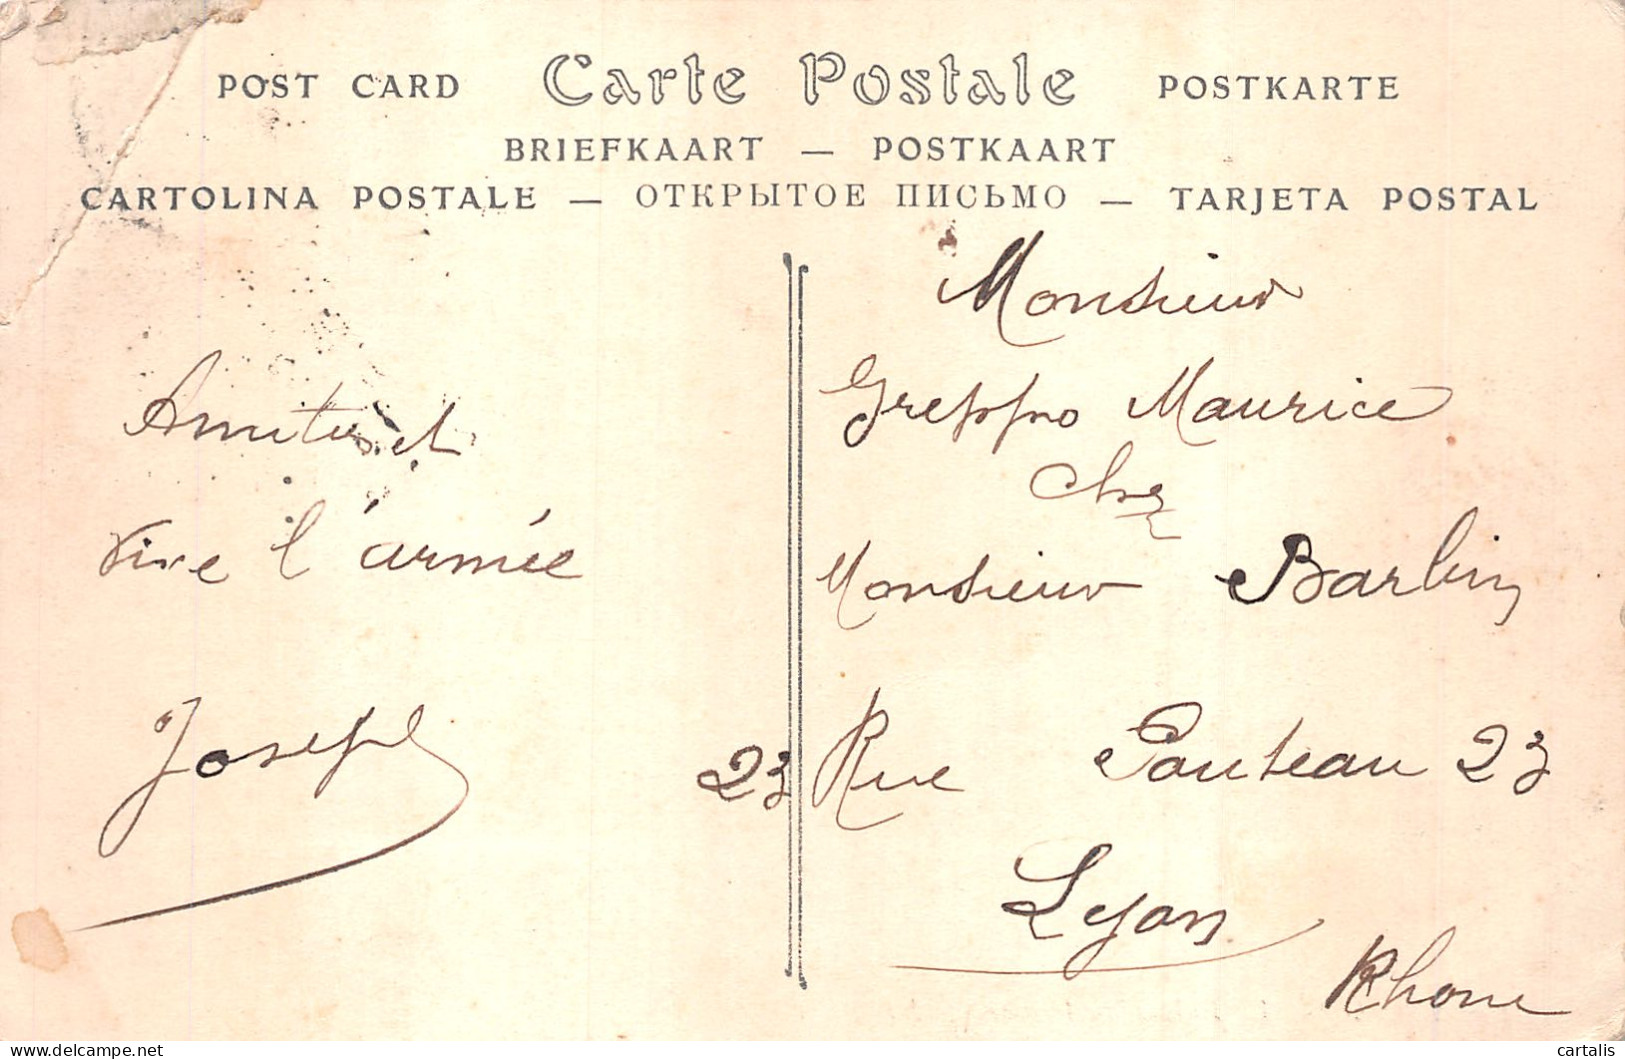 POST CARD Carte Postale POSTKARTE
BRIEFKAART — POSTKAART
CARTOLINA POSTALE — ОТКРЫТОЕ ПИСЬМО — TARJETA POSTAL
Amitiés et
Vive l'armée
Joseph
Monsieur
Greppo Maurice
chez
Monsieur Barbin
23 Rue Pouteau 23
Lyon
Rhone
delcampe.net
cartalis